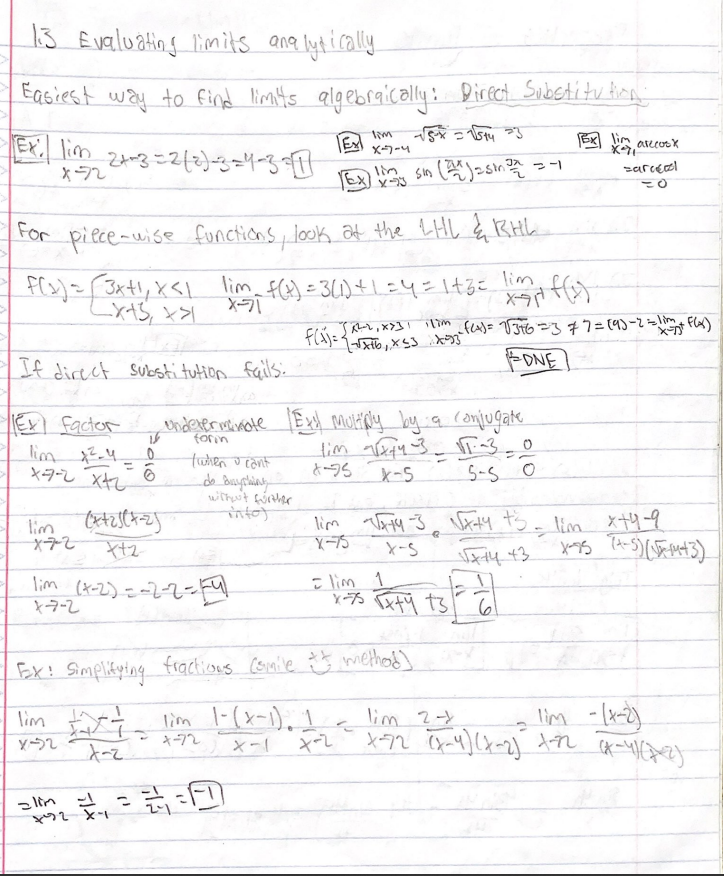 1.3 Evaluating limits analytically
Easiest way to find limits algebraically: Direct Substitution
Ex: lim x→2 2x-3 = 2(2)-3 = 4-3 = 1
Ex lim x→-4 √5-x = √5+4 = 3
Ex lim x→3 sin (πx/2) = sin 3π/2 = -1
Ex lim x→1 arccosx
= arccos1
= 0
For piece-wise functions, look at the LHL & RHL
f(x) = { 3x+1, x<1
x+3, x>1
lim x→1⁻ f(x) = 3(1)+1 = 4 = 1+3 = lim x→1⁺ f(x)
f(x) = { x²-2, x>3
√x+6, x≤3
lim x→3⁻ f(x) = √3+6 = 3 ≠ 7 = (9)-2 = lim x→3⁺ f(x)
= DNE
If direct substitution fails:
Ex Factor
undeterminate form
(when u cant do anything without further info)
lim x→-2 x²-4/x+2 = 0/0
lim x→-2 (x+2)(x-2)/x+2
lim x→-2 (x-2) = -2-2 = -4
Ex: Multiply by a conjugate
lim x→5 √x+4 -3/x-5 = √9 -3/5-5 = 0/0
lim x→5 √x+4 -3/x-5 • √x+4 +3/√x+4 +3 = lim x→5 x+4-9/(x-5)(√x+4+3)
= lim x→5 1/√x+4 +3 = 1/6
Ex: Simplifying fractions (smile method)
lim x→2 1/x-1 - 1/1 / x-2 = lim x→2 1-(x-1)/x-1 • 1/x-2 = lim x→2 2-x/(x-4)(x-2) = lim x→2 -(x-2)/(x-4)(x-2)
= lim x→2 -1/x-1 = -1/2-1 = -1